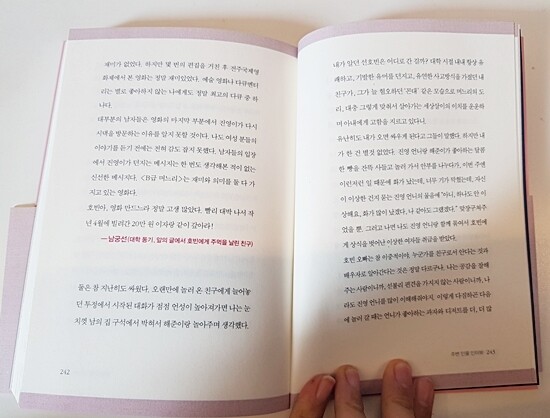 재미가 없었다. 하지만 몇 번의 편집을 거친 후 전주국제영
화제에서 본 영화는 정말 재미있었다. 예술 영화나 다큐멘터
리는 별로 좋아하지 않는 나에게도 정말 최고의 다큐 중 하
나다.
대부분의 남자들은 영화의 마지막 부분에서 진영이가 다시
시댁을 방문하는 이유를 알지 못할 것이다. 나도 여성 분들의
이야기를 듣기 전에는 전혀 감도 잡지 못했다. 남자들의 입장
에서 진영이가 던지는 메시지는 한 번도 생각해본 적이 없는
신선한 메시지다. <B급 며느리>는 재미와 의미를 둘 다 가
지고 있는 영화다.
호빈아, 영화 만드느라 정말 고생 많았다. 빨리 대박 나서 작
년 4월에 빌려간 20만 원 이자랑 같이 갚아라!
―남궁선(대학 동기, 앞의 글에서 호빈에게 주먹을 날린 친구)
둘은 참 지난히도 싸웠다. 오랜만에 놀러 온 친구에게 늘어놓
던 투정에서 시작된 대화가 점점 언성이 높아져가면 나는 눈
치껏 남의 집 구석에서 박혀서 해준이랑 놀아주며 생각했다.
242
내가 알던 선호빈은 어디로 간 걸까? 대학 시절 내내 항상 유
쾌하고, 기발한 유머를 던지고, 유연한 사고방식을 가졌던 내
친구가, 그가 늘 혐오하던 '꼰대' 같은 모습으로 며느리의 도
리, 대충 그렇게 맞춰서 살아가는 세상살이의 이치를 운운하
며 아내에게 고함을 지르고 있다니.
유난히도 내가 오면 싸우게 된다고 그들이 말했다. 하지만 내
가 한 건 별것 없었다. 진영 언니랑 해준이가 좋아하는 달콤
한 빵을 잔뜩 사들고 놀러 가서 안부를 나누다가, 이번 주엔
이런저런 일 때문에 화가 났는데, 너무 기가 막혔는데, 자신
이 이상한 건지 묻는 진영 언니의 물음에 "아니, 하나도 안 이
상해요, 화가 많이 났겠다. 나 같아도 그랬겠다." 맞장구쳐주
었을 뿐. 그러고 나면 나도 진영 언니랑 함께 묶여서 호빈에
게 상식을 벗어난 이상한 여자들 취급을 받았다.
호빈 오빠는 참 이중적이야. 누군가를 친구로서 만나는 것과
배우자로 알아간다는 것은 정말 다르구나. 나는 공감을 잘해
주는 사람이니까, 선불리 편견을 가지지 않는 사람이니까, 나
라도 진영 언니를 많이 이해해줘야지. 이렇게 다짐하곤 다음
에 놀러 갈 때는 언니가 좋아하는 과자와 디저트를 더, 더 많
주변 인물 인터뷰 243